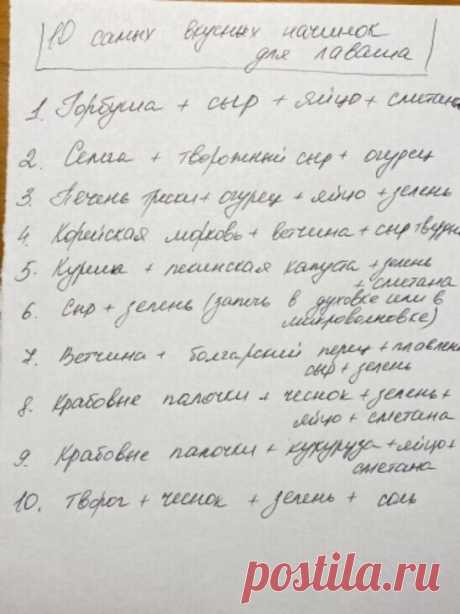 10 самых вкусных начинок
для лаваша
1. Горбуша + сыр + яйцо + сметана
2. Семга + творожный сыр + огурец
3. Печень трески + огурец + яйцо + зелень
4. Корейская морковь + ветчина + сыр тверды
5. Курица + пекинская капуста + зелень
+ сметана
6. Сыр + зелень (запечь в духовке или в
микроволновке)
7. Ветчина + болгарский перец + плавлен
сыр + зелень
8. Крабовые палочки + чеснок + зелень +
яйцо + сметана
9. Крабовые палочки + кукуруза + яйцо +
сметана
10. Творог + чеснок + зелень + соль
postila.ru